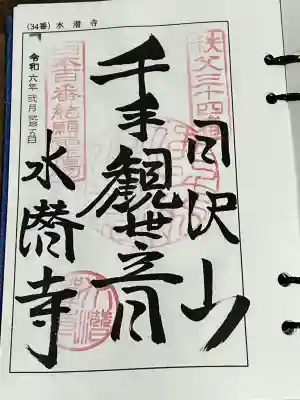 (34番) 水潜寺
秩父三十四番
日沢山
千手観世音
日本百番結願
水潜寺
令和六年弐月弐拾五日
水潜寺